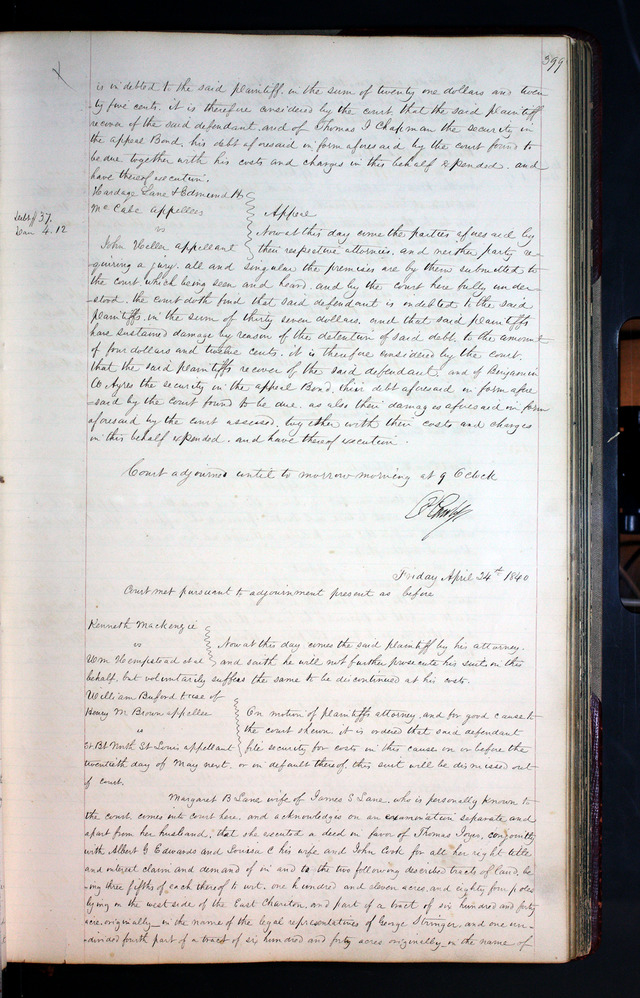 399
is indebted to the said plaintiff in the sum of twenty one dollars and twen
ty five cents. it is therefore considered by the court that the said plaintiff
recover of the said defendant and of Thomas J Chapman the security in
the appeal Bond, his debt aforesaid in form aforesaid by the court found to
be due together with his costs and charges in this behalf expended. and
have thereof execution.
Hardage Lane & Edmund H
Mc Cabe appellees
vs
John Hellen appellant
Debt $ 37.
Dam 4.12
Appeal
Now at this day come the parties aforesaid by
their respective attornies, and neither party re-
quiring a jury. all and singular the premises are by them submitted to
the court which being seen and heard. and by the court here fully under
stood. the court doth find that said defendant is indebted to the said
plaintiffs, in the sum of thirty seven dollars. and that said plaintiffs
have sustained damage by reason of the detention of said debt. to the amount
of four dollars and twelve cents. it is therefore considered by the court.
that the said plaintiffs recover of the said defendant, and of Benjamin
Ayres the security in the appeal Bond, their debt aforesaid in form afore
-said by the court found to be due. as also their damages aforesaid in form
aforesaid by the court assessed. together with their costs and charges
in this behalf expended. and have thereof execution.
Court adjourned until to morrow morning at 9 OClock
Friday April 24th 1840
Court met pursuant to adjournment present as before
Kenneth Mackenzie
vs
Wm Hempstead et al
Now at this day comes the said plaintiff by his attorney.
and saith he will not further prosecute his suit in this
behalf, but voluntarily suffers the same to be discontinued at his costs.
William Buford to use of
Henry M Brown appellee
vs
St Bt North St Louis appellant
On motion of plaintiffs attorney, and for good cause to
the court shewn. it is ordered that said defendant
file security for costs in this cause on or before the
twentieth day of May next. or in default thereof, this suit will be dismissed out
of court.
Margaret B Lane wife of James S Lane, who is personally known to
the court. comes into court here, and acknowledges on an examination separate and
apart from her husband, that she executed a deed in favor of Thomas Joyes, conjointly
with Albert G Edwards and Louisa C his wife and John Cook for all her right title
and interest claim and demand of in and to the two following described tracts of land, be
ing three fifths of each thereof to wit. one hundred and eleven acres, and eighty four poles
lying on the west side of the East Chariton, and part of a tract of six hundred and forty
acres, originally in the name of the legal representatives of George Stringer, and one un-
-divided fourth part of a tract of six hundred and forty acres originally in the name of